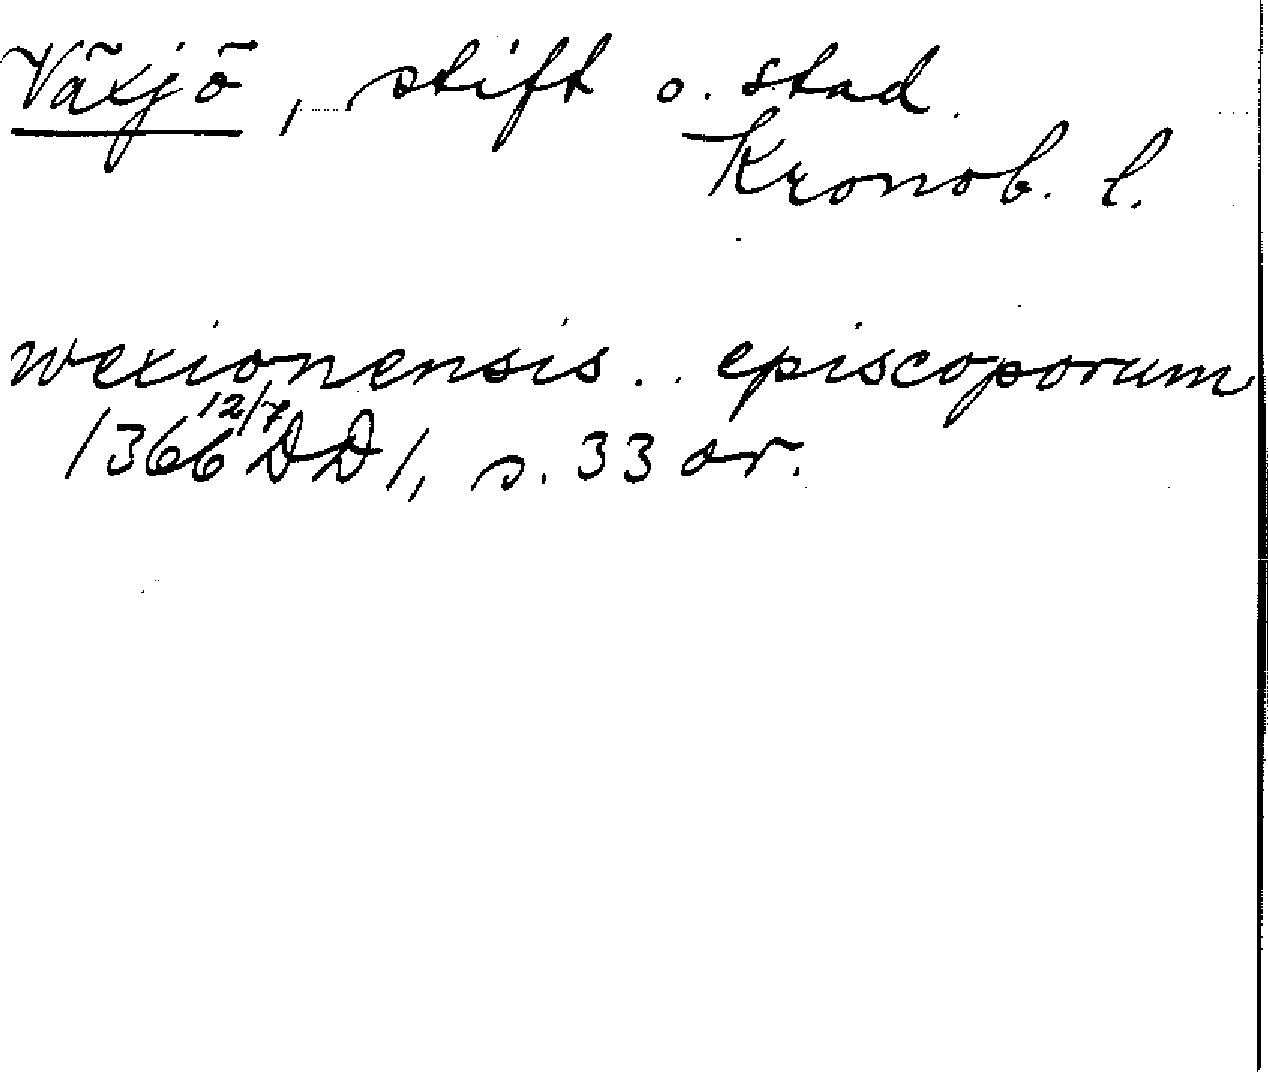 Växjö, stift o. stad.
Kronob. l.
wexionensis .. episcoporum
1366 12/7 DD 1, s. 33 or.